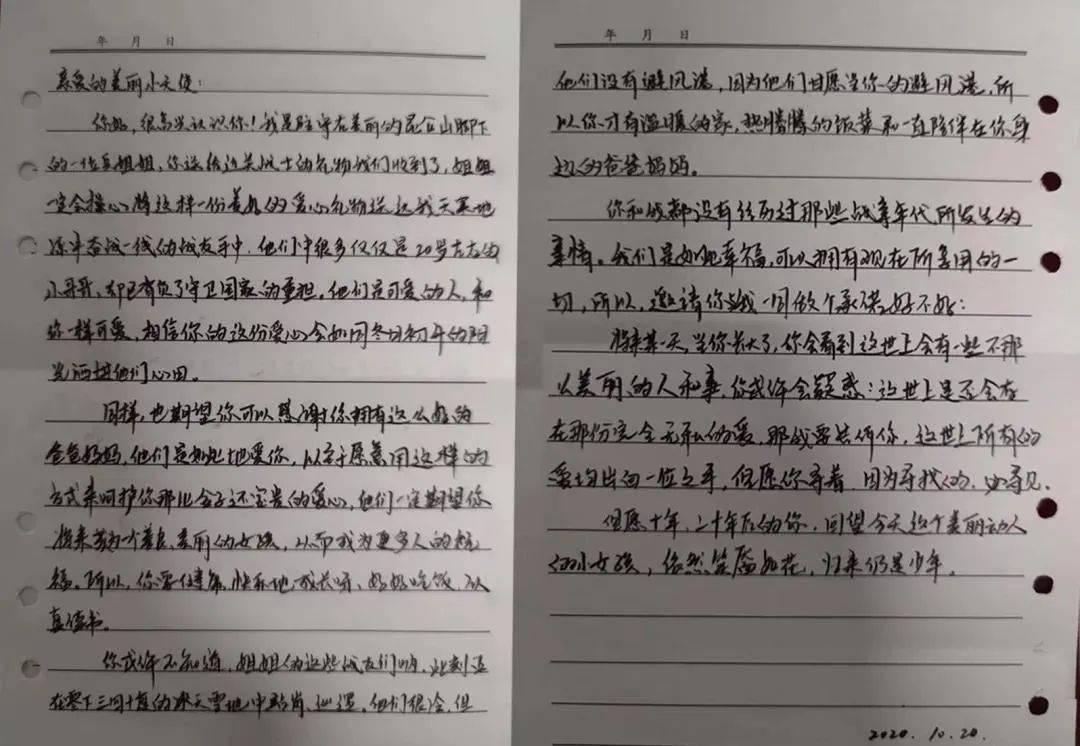 年 月 日
亲爱的美丽小天使：
你好，很高兴认识你！我是驻守在美丽的昆仑山脚下
的一位兵姐姐，你送给边关战士的礼物我们收到了，姐姐
一定会操心将这样一份美好的爱心礼物送达我天寒地
冻牛奋战一线的战友手中，他们中很多仅仅是20岁左右的
小哥哥，却已有负了守卫国家的重担。他们是可爱的人，和
你一样可爱，相信你的这份爱心会如同冬日初升的阳
光洒进他们心田。
同样，也期望你可以感谢你拥有这么好的
爸爸妈妈，他们是如此地爱你，以至于愿意用这样的
方式来呵护你那比金子还宝贵的爱心，他们一定期望你
将来成为一个善良、美丽的女孩，从而成为更多人的祝
福。所以，你要健康、快乐地成长呀，好好吃饭，认
真读书。
你或许不知道，姐姐的这些战友们呀，此刻正
在零下三四十度的冰天雪地中站岗、巡逻。他们很冷，但
年 月 日
他们没有避风港，因为他们甘愿当你的避风港，所
以你才有温暖的家，热腾腾的饭菜和一直陪伴在你身
边的爸爸妈妈。
你和我都没有经历过那些战争年代所发生的
事情。我们是如此幸福，可以拥有现在所享用的一
切，所以，邀请你与我一同做个承诺好不好：
将来某一天，当你长大了，你会看到这世上会有一些不那
么美丽的人和事，你或许会疑惑：这世上是否会存
在那份完全无私的爱，那我要告诉你，这世上所有的
爱均出自一位之手，但愿你寻着，因为寻找的，必寻见。
但愿十年、二十年后的你，回望今天这个美丽动人
的小女孩，依然笑靥如花，归来仍是少年。
2020.10.20.